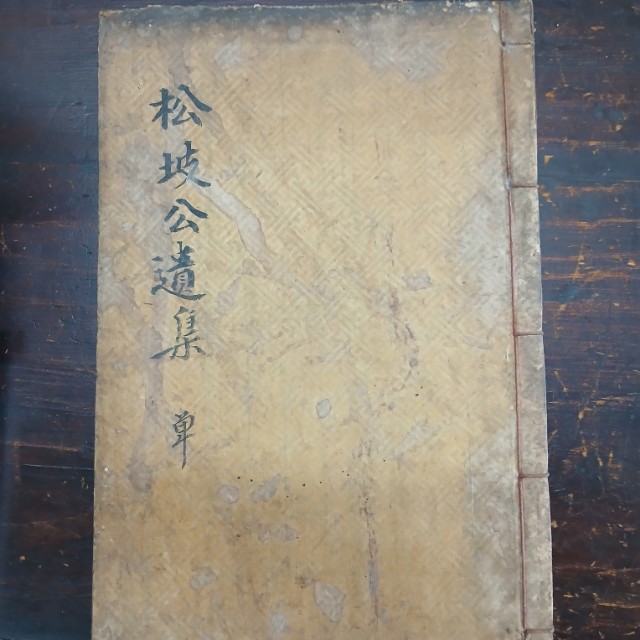 松坡公遺集 單